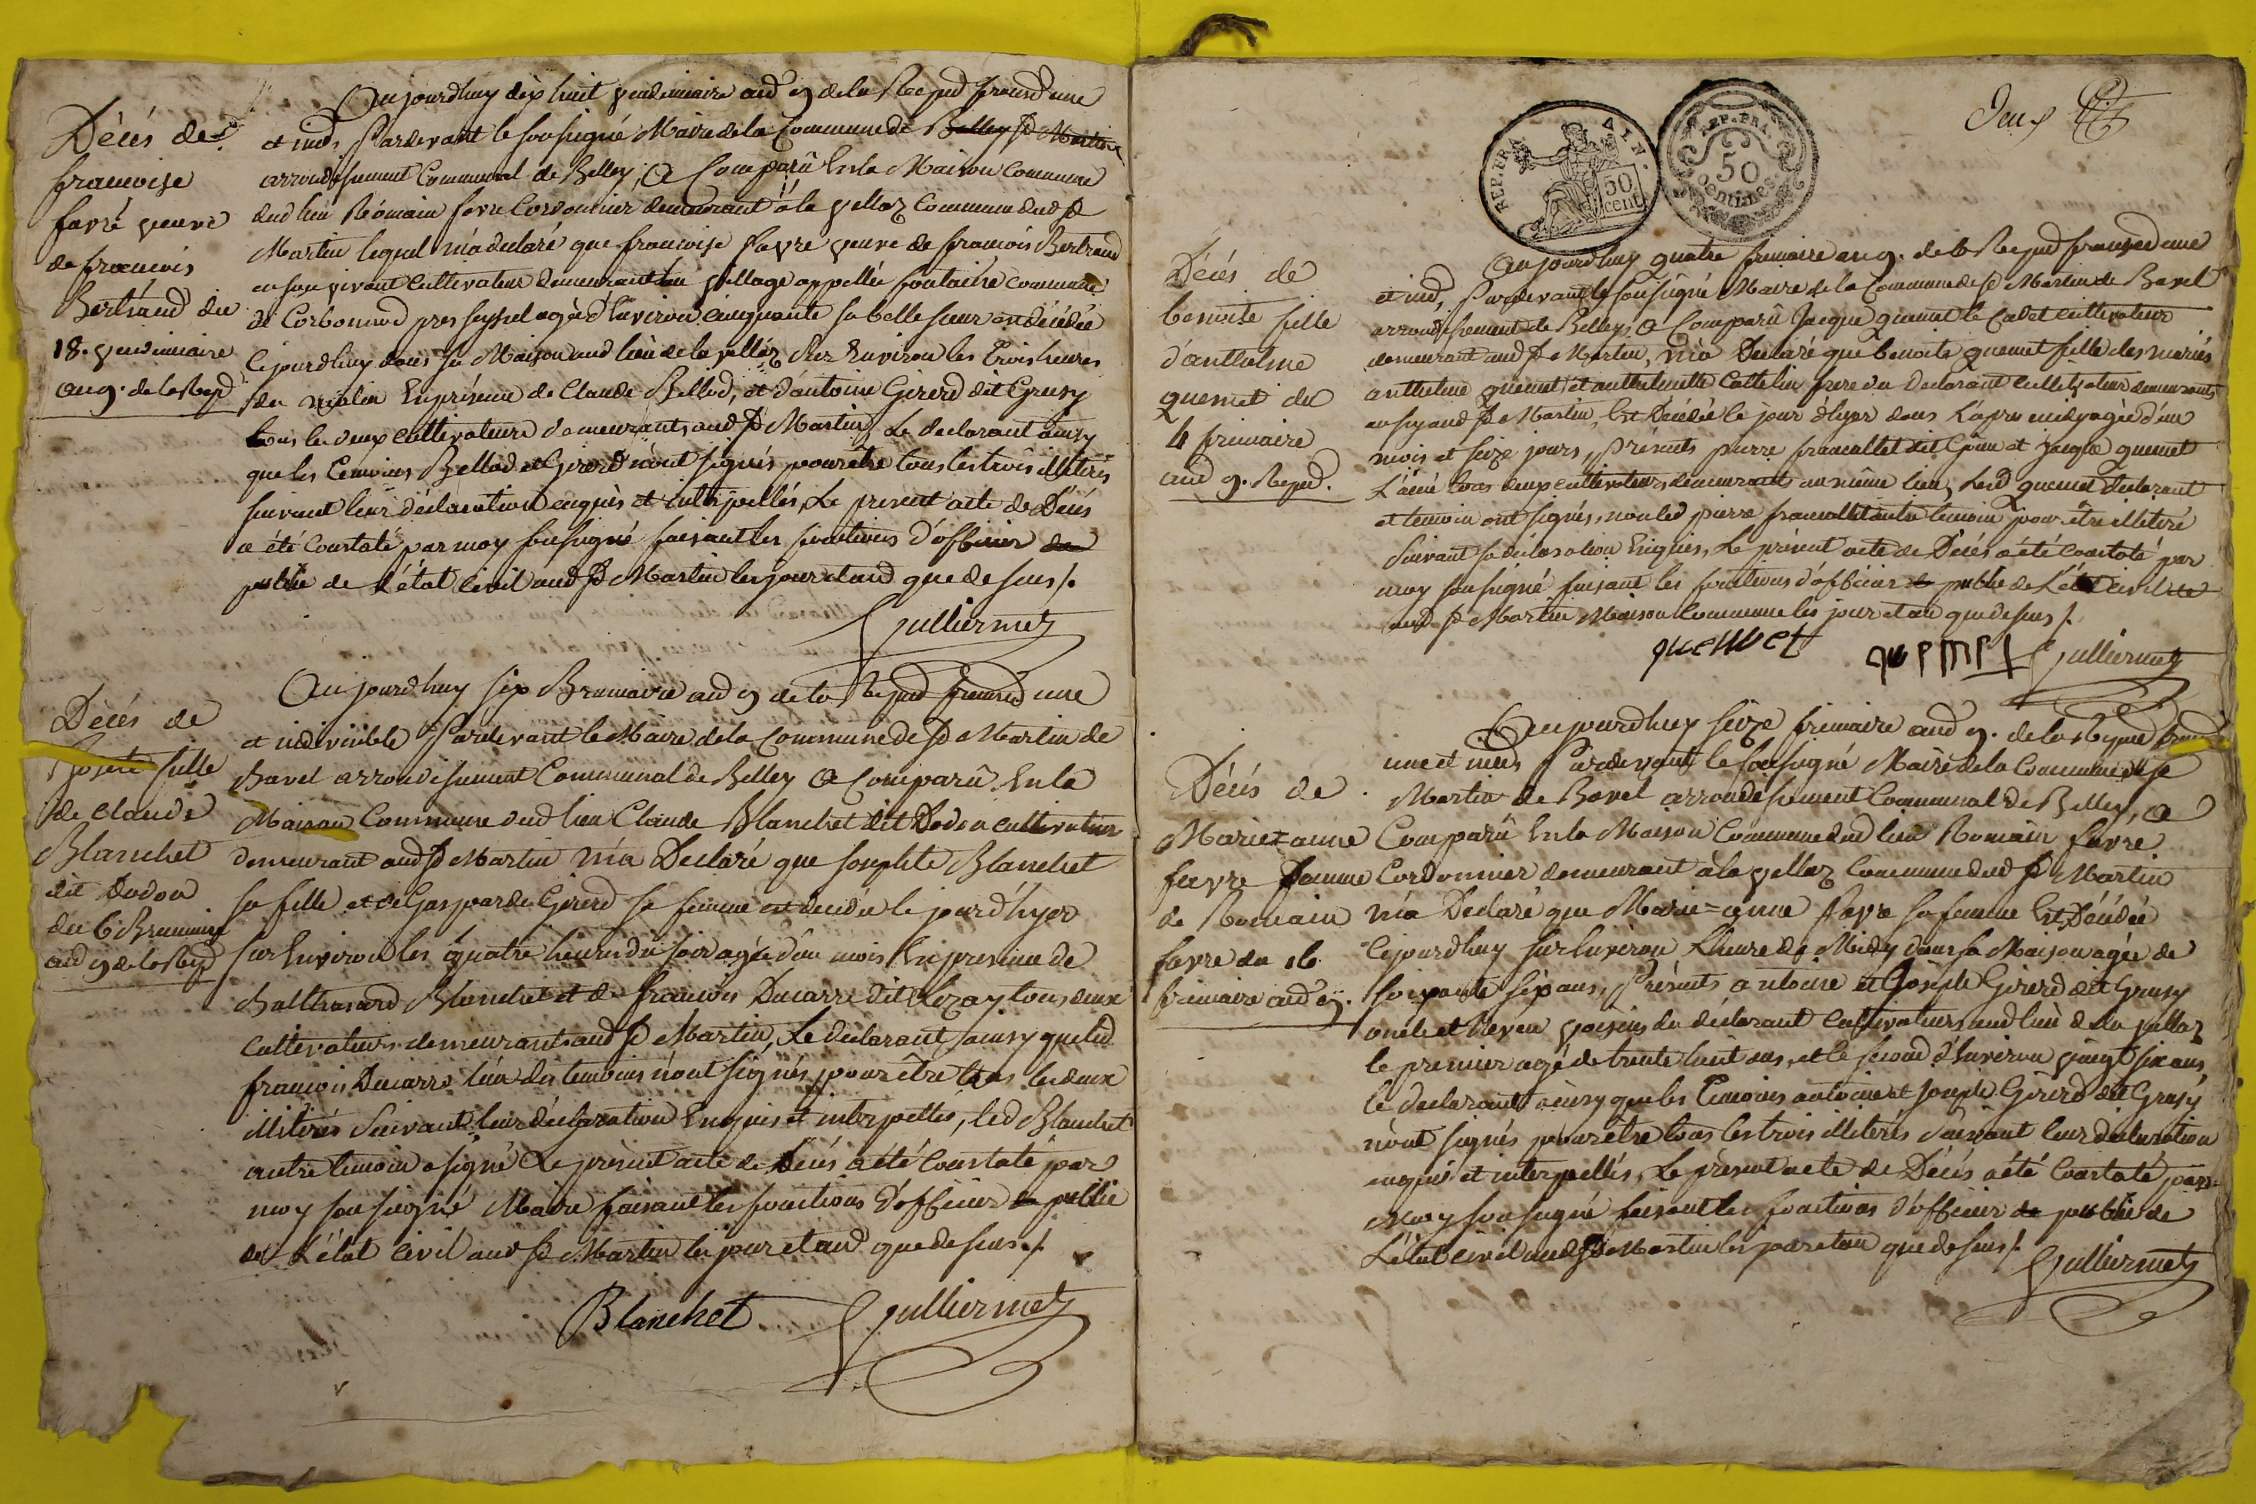 Décès de
francoise
favre veuve
de francois
Bertrand du
18. vendimiaire
an 9. de la Rep
Aujourdhuy dix huit vendimiaire an 9 de la Repud francd une
et ind, Pardevant le soussigné Maire de la Commune de Belley St Martin
arrondissement Communal de Belley, a Comparû En la Maison Commune
dud lieu Romain favre Cordonnier demeurant à la vellaz Commune dud St
Martin lequel m'a declaré que francoise favre veuve de francois Bertrand
en son vivant cultivateur demeurant au village appellée fontaine Commune
de Corbonnod pres Seyssel agée d'Environ cinquante sa belle soeur est décédée
Cejourdhuy dans sa Maison aud lieu de la vellaz sur Environ les trois heures
du matin En présence de Claude Bellod, et d'antoine Girerd dit Grusy
tous les deux cultivateurs demeurants aud St Martin Le declarant ainsy
que les temoins Bellod et Girerd n'ont signés pour être tous les trois illiterés
suivant leur déclaration enquis et interpellés, Le present acte de Décés
a été Constaté par moy soussigné faisant les fonctions d'officier de
public de L'état Civil aud St Martin les jour et and que dessus /.
Gulliermet
Décés de
Josephte fille
de Claude
Blanchet
dit Dodon
du 6 Brumaire
and 9 de la Rep
Aujourdhuy six Brumaire and 9 de la Repud francd une
et indivisible Pardevant le Maire de la Commune de St Martin de
Bavel arrondissement Communal de Belley a Comparû En la
Maison Commune dud lieu Claude Blanchet dit Dodon cultivateur
demeurant aud St Martin m'a Declaré que Josephte Blanchet
sa fille et de Gasparde Girerd sa femme est decédée le jour d'hyer
sur Environ les quatre heures du soir agée d'un mois En presence de
Balthazard Blanchet et de francois Ducarre dit Lozay tous deux
cultivateurs demeurants aud St Martin, Le declarant ainsy que led
francois Ducarre l'un des temoins n'ont signés pour être tous les deux
illitérés Suivant leur déclaration Enquis et interpellés, led Blanchet
autre temoin a signé Le présent acte de Décés a été Constaté par
moy soussigné Maire faisant les fonctions d'officier de public
de L'état Civil aud St Martin les jour et and que dessus /.
Blanchet Gulliermet
REP. FRA. AIN.
50 cent.
REP. FRA.
50 centimes
Deux
Décés de
benoite fille
d'anthelme
quenet du
4 frimaire
and 9. Repud.
Aujourdhuy quatre frimaire an 9. de la Repud francd une
et ind, Pardevant le soussigné Maire de la Commune de St Martin de Bavel
arrondissement de Belley, a Comparû Jacque quenet le Cadet cultivateur
demeurant aud St Martin, m'a Declaré que benoite quenet fille des mariés
anthelme quenet et anthelmette Cattelin frere du declarant cultivateur demeurants
aussy aud St Martin, Est Décédée le jour d'hyer dans L'apres midy agée d'un
mois et seize jours, Présents pierre francallet dit et Jacque quenet
L'ainé tous deux cultivateurs demeurants au même lieu, Lesd quenet declarant
et temoin ont signés, non led pierre francallet autre temoin pour être illiteré
Suivant sa déclaration Enquis, Le présent acte de Décés a été Constaté par
moy soussigné faisant les fonctions d'officier de public de L'état Civil
aud St Martin Maison Commune les jour et an que dessus /.
quennet quemet Gulliermet
Décés de
Marie=anne
favre femme
de Romain
favre du 16
frimaire and 9.
Aujourdhuy Seize frimaire and 9. de la Repud francd
une et indi Pardevant le soussigné Maire de la Commune de St
Martin de Bavel arrondissement Communal de Belley, a
Comparû En la Maison Commune dud lieu Romain favre
Cordonnier demeurant à la vellaz Commune dud St Martin
m'a Declaré que Marie=anne favre sa femme Est Décédée
Cejourdhuy sur Environ L'heure de Midy dans sa Maison agée de
soixante six ans, Présents antoine et Joseph Girerd dit Grusy
oncle et neveu voisins du déclarant cultivateurs aud lieu de la vellaz
le premier agé de trente huit ans, et le second d'Environ vingt six ans
le declarant ainsy que les temoins antoine et Joseph Girerd dit Grusy
n'ont signés pour être tous les trois illiterés Suivant leur déclaration
enquis et interpellés, Le présent acte de Décés a été Constaté par
Moy soussigné faisant les fonctions d'officier de public de
L'état civil aud St Martin les jour et an que dessus /.
Gulliermet